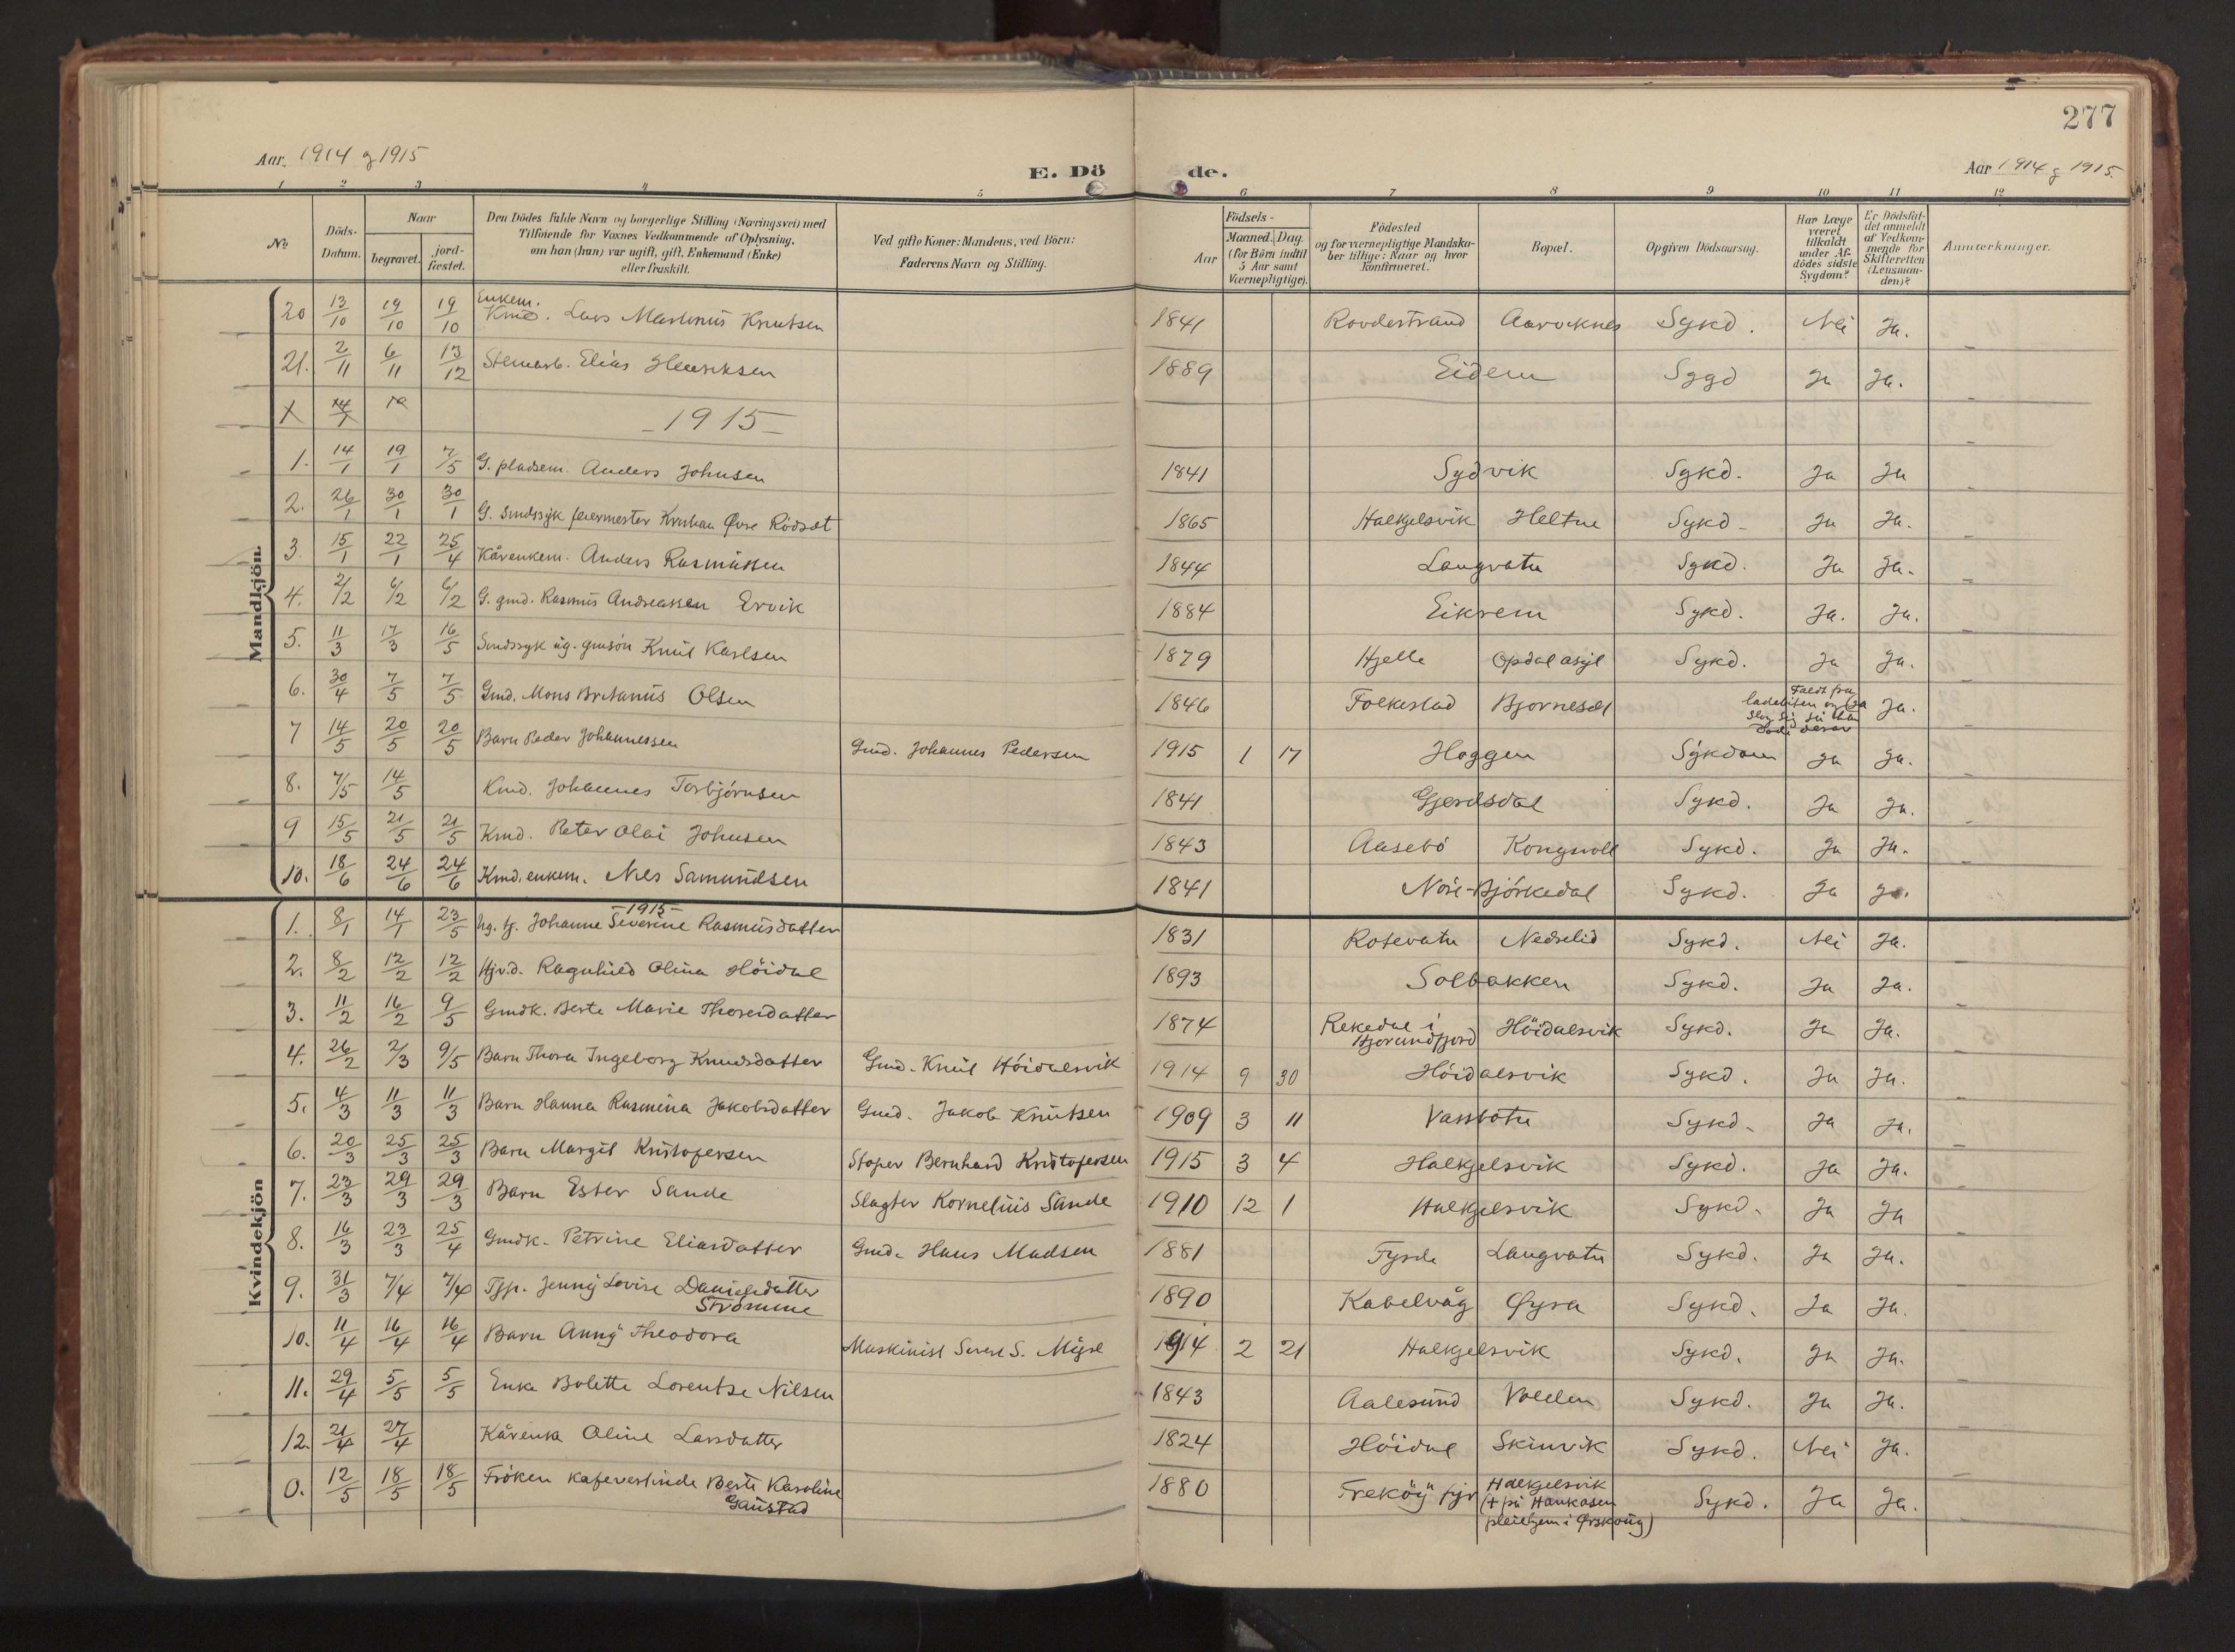 277
Aar 1914 g 1915
E. Dö de.
Aar 1914 g 1915.
1 2 3 4 5 6 7 8 9 10 11 12
No
Döds-Datum.
Naar
begravet.
jord-fæstet.
Den Dödes fulde Navn og borgerlige Stilling (Næringsvei) med
Tilföiende for Voxnes Vedkommende af Oplysning,
om han (hun) var ugift, gift, Enkemand (Enke)
eller fraskilt.
Ved gifte Koner: Mandens, ved Börn:
Faderens Navn og Stilling.
Födsels-
Aar
Maaned. Dag.
(for Börn indtil
5 Aar samt
Værnepligtige).
Födested
og for værnepligtige Mandska-
ber tillige: Naar og hvor
konfirmeret.
Bopæl.
Opgiven Dödsaarsag.
Har Læge
været
tilkaldt
under Af-
dödes sidste
Sygdom?
Er Dödsfal-
det anmeldt
af Vedkom-
mende for
Skifteretten
(Lensman-
den)?
Anmærkninger.
Mandkjön.
20 13/10 19/10 19/10 Enkem. Kmd. Lars Martinus Knutsen 1841 Rovdestrand Aarviknes Sykd. Nei Ja.
21. 2/11 6/11 13/12 Stenarb. Elias Henriksen 1889 Eidem Sygd Ja Ja.
X 14/1 19
- 1915 -
1. 14/1 19/1 7/5 G. pladsem. Anders Johnsen 1841 Sydvik Sykd. Ja Ja
2. 26/1 30/1 30/1 G. sindssyk feiermester Kristian Øvre Rödset 1865 Halkjelsvik Heltne Sykd- Ja Ja.
3. 15/1 22/1 25/4 Kårenkem. Anders Rasmussen 1844 Langvatn Sykd. Ja Ja.
4. 2/2 6/2 6/2 G. gmd. Rasmus Andreassen Ervik 1884 Eikrem Sykd. Ja. Ja.
5. 11/3 17/3 16/5 Sindssyk ug. gmsön Knut Karlsen 1879 Hjelle Opdal asyl Sykd. Ja Ja.
6. 30/4 7/5 7/5 Gmd. Mons Britanus Olsen 1846 Folkestad Bjørneset Faldt fra
7 14/5 20/5 20/5 Barn Peder Johannessen Gmd. Johannes Pedersen 1915 1 17 Hoggen Sykdom Ja Ja.
8. 7/5 14/5 Kmd. Johannes Torbjörnsen 1841 Gjerdsdal Sykd. Ja Ja.
9 15/5 21/5 21/5 Kmd. Peter Olai Johnsen 1843 Aasebö Kongsvoll Sykd. Ja Ja.
10. 18/6 24/6 24/6 Kmd. enkem. Nils Samundsen 1841 Nore-Bjørkedal Sykd. Ja Ja.
Kvindekjön
- 1915 -
1. 8/1 14/1 23/5 Ug. tj. Johanne Severine Rasmusdatter 1831 Rotevatn Nedrelid Sykd. Nei Ja.
2. 8/2 12/2 12/2 Hjv.d. Ragnhild Olina Höidal 1893 Solbakken Sykd. Ja Ja.
3. 11/2 16/2 9/5 Gmdk. Berte Marie Thoresdatter 1874 Rekedal i Hjørundfjord Höidalsvik Sykd. Ja Ja.
4. 26/2 2/3 9/5 Barn Thora Ingeborg Knudsdatter Gmd. Knut Höidalsvik 1914 9 30 Höidalsvik Sykd. Ja Ja.
5. 4/3 11/3 11/3 Barn Hanna Rasmina Jakobsdatter Gmd. Jakob Knutsen 1909 3 11 Vassbotn Sykd- Ja Ja.
6. 20/3 25/3 25/3 Barn Margit Kristofersen Støper Bernhard Kristofersen 1915 3 4 Halkjelsvik Sykd. Ja Ja.
7. 23/3 29/3 29/3 Barn Ester Sande Slagter Kornelius Sande 1910 12 1 Halkjelsvik Sykd. Ja Ja
8. 16/3 23/3 25/4 Gmdk. Petrine Eliasdatter Gmd. Hans Madsen 1881 Fyrde Langvatn Sykd. Ja Ja.
9. 31/3 7/4 7/4 Tjp. Jenny Lovise Danielsdatter Strömme 1890 Kabelvåg Øyra Sykd. Ja Ja.
10. 11/4 16/4 16/4 Barn Anny Theodora Maskinist Severt S. Myre 1914 2 21 Halkjelsvik Sykd. Ja Ja.
11. 29/4 5/5 5/5 Enke Bolette Lorentse Nilsen 1843 Aalesund Volden Sykd. Ja Ja.
12. 21/4 27/4 Kårenka Oline Larsdatter 1824 Höidal Skinvik Sykd. Nei Ja.
0. 12/5 18/5 18/5 Fröken kafevertinde Berte Karoline Gaustad 1880 Halkjelsvik (+ på Haukåsen pleiehjem i Ørskoug) Sykd. Ja Ja.